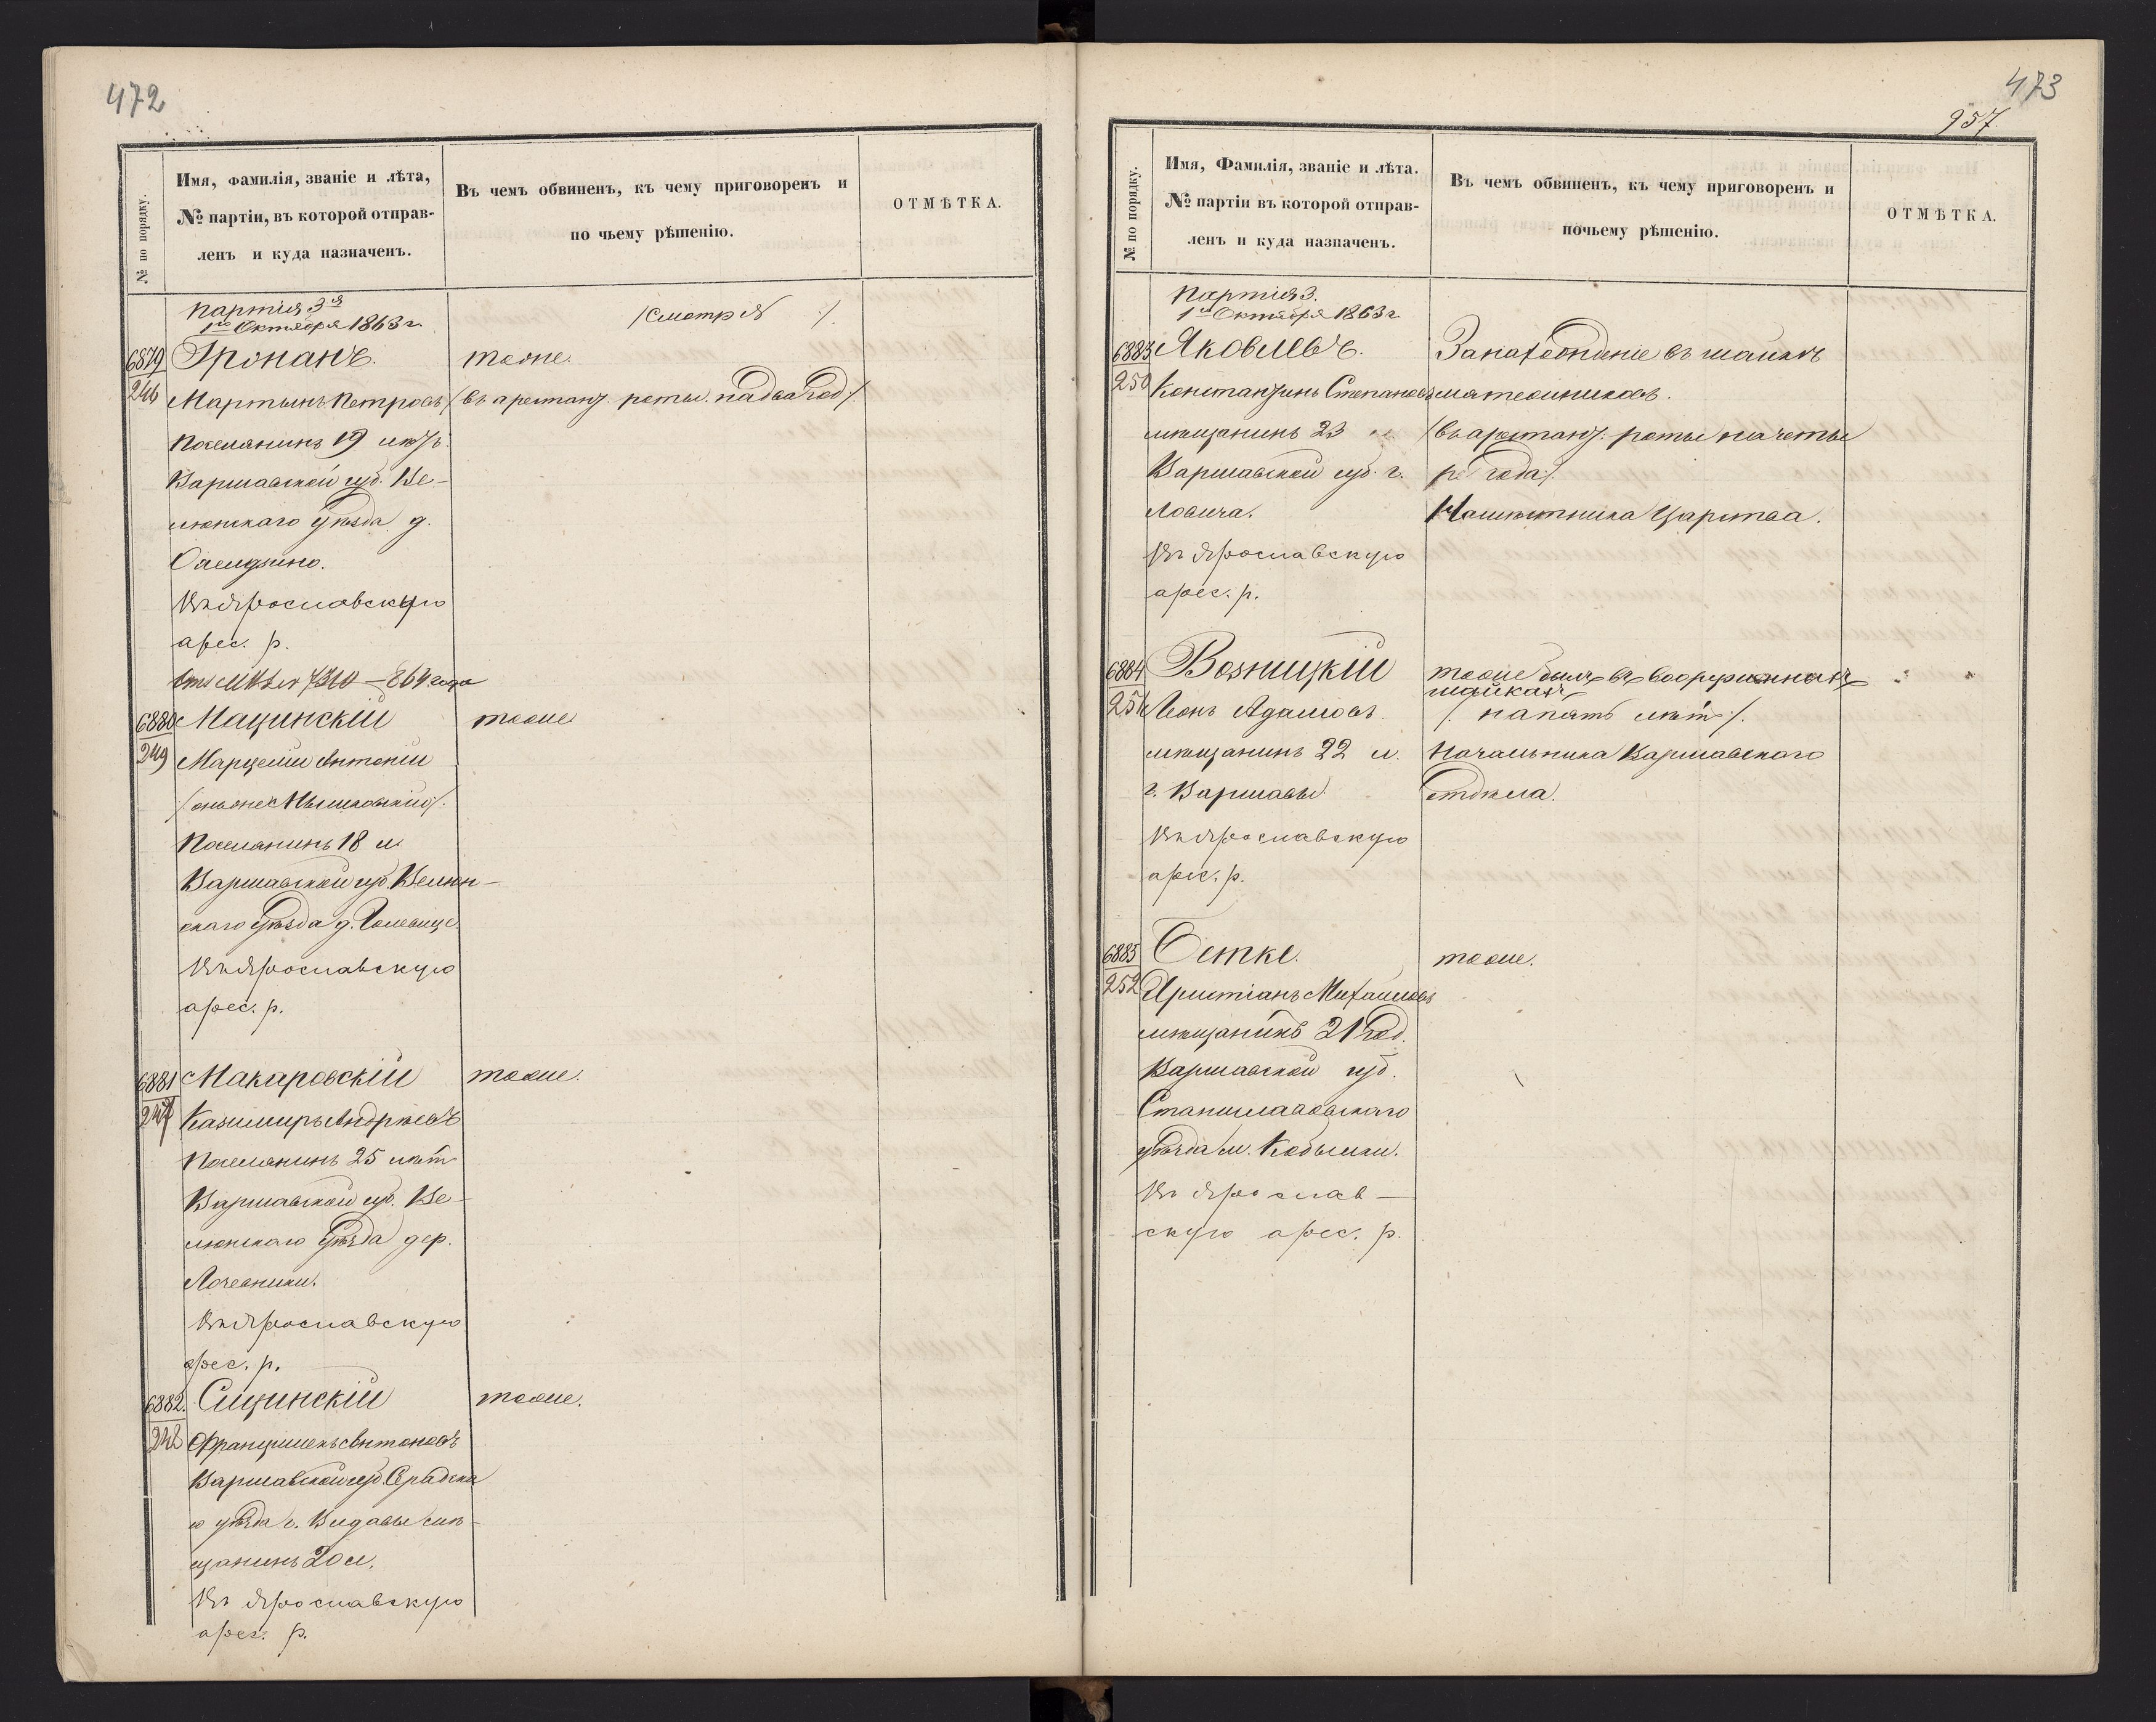 472
№ по порядку.
Имя, фамилія, званіе и лѣта,
№ партіи, въ которой отправ-
ленъ и куда назначенъ.
Въ чемъ обвиненъ, къ чему приговоренъ и
по чьему рѣшенію.
ОТМѢТКА.
партія 3я
1го Октября 1863 г.
/смотр №
6879
246
Гронанъ.
тоже.
Мартынъ Петровъ
/въ арестант. роты. на два год/.
Поселянинъ 19 лѣтъ.
Варшавской губ. Ве-
люнскаго уѣзда д.
Въ Ярославскую
арес. р.
7310 – 864 года
6880
249
Мацинскій
тоже
Марцелій Антоній
Поселянинъ 18 л.
Варшавской губ. Велюн-
скаго уѣзда д.
Въ Ярославскую
арес. р.
6881
247
Макаровскій
тоже.
Казимиръ Андржевъ
Поселянинъ 25 лѣт
Варшавской губ. Ве-
люнскаго уѣзда дер.
Въ Ярославскую
арес. р.
6882.
248
Сицинскій
тоже.
Францишекъ Антоновъ
Варшавской губ. Сѣрадска
го уѣзда г. Видавы мѣ-
щанинъ 20 л.
Въ Ярославскую
арес. р.
473
957.
№ по порядку.
Имя, Фамилія, званіе и лѣта.
№ партіи въ которой отправ-
ленъ и куда назначенъ.
Въ чемъ обвиненъ, къ чему приговоренъ и
почьему рѣшенію.
ОТМѢТКА.
партія 3.
1го Октября 1863 г
6883
250
Яковлевъ.
За нахожденіе въ шайкѣ
Константинъ Степановъ
мятежниковъ.
мѣщанинъ 23
/въ арестант. роты на четы
Варшавской губ. г.
ре года/.
Ловича.
Намѣстника Царства.
Въ Ярославскую
арес. р.
6884
251
Возницкій
тоже былъ въ вооруженныхъ
шайкахъ
Леонъ Адамовъ
/. на пять лѣт /.
мѣщанинъ 22 л.
Начальника Варшавскаго
г. Варшавы.
отдѣла.
Въ Ярославскую
арес. р.
6885
252
Сетке.
тоже.
Христіанъ Михаиловъ
мѣщанинъ 21 год.
Варшавской губ.
Станиславовскаго
уѣзда м. Кобылки.
Въ Ярослав-
скую арес. р.